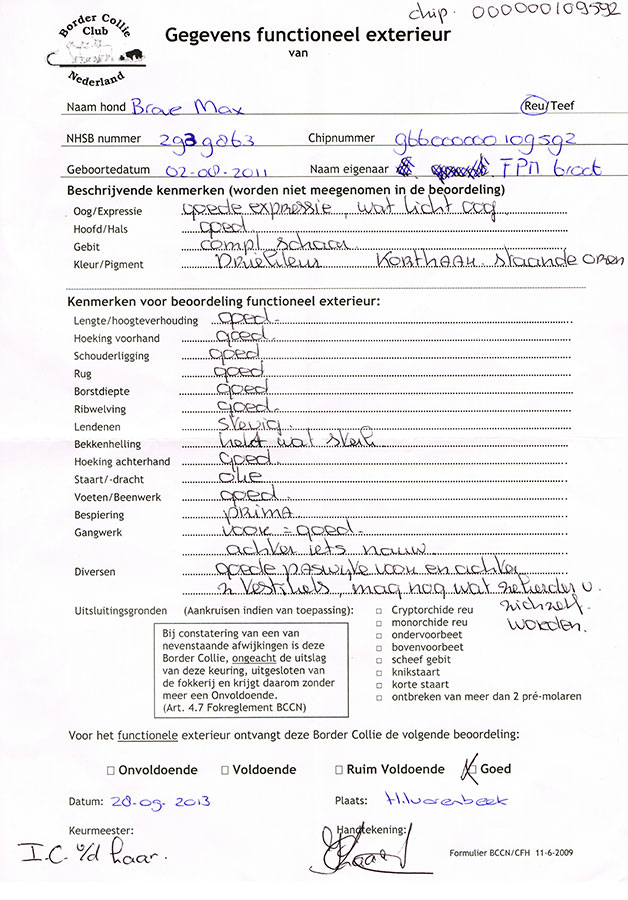 chip. 000000109592
Border Collie Club Nederland
Gegevens functioneel exterieur
van
Naam hond Brave Max Reu/Teef
NHSB nummer 2939863 Chipnummer 966000000109592
Geboortedatum 02-08-2011 Naam eigenaar FPM
Beschrijvende kenmerken (worden niet meegenomen in de beoordeling)
Oog/Expressie goede expressie, wat licht oog
Hoofd/Hals goed
Gebit compl schaar
Kleur/Pigment Driekleur Korthaar. staande oren
Kenmerken voor beoordeling functioneel exterieur:
Lengte/hoogteverhouding goed.
Hoeking voorhand goed.
Schouderligging goed
Rug goed
Borstdiepte goed
Ribwelving goed.
Lendenen stevig.
Bekkenhelling helt wat steil
Hoeking achterhand Goed.
Staart/-dracht oke
Voeten/Beenwerk goed.
Bespiering prima
Gangwerk voor = goed.
achter iets nauw
Diversen goede paswijte voor en achter
2 testikels, mag nog wat zekerder v.
zichzelf.
worden.
Uitsluitingsgronden (Aankruisen indien van toepassing):
Cryptorchide reu
monorchide reu
ondervoorbeet
bovenvoorbeet
scheef gebit
knikstaart
korte staart
ontbreken van meer dan 2 pré-molaren
Bij constatering van een van
nevenstaande afwijkingen is deze
Border Collie, ongeacht de uitslag
van deze keuring, uitgesloten van
de fokkerij en krijgt daarom zonder
meer een Onvoldoende.
(Art. 4.7 Fokreglement BCCN)
Voor het functionele exterieur ontvangt deze Border Collie de volgende beoordeling:
Onvoldoende Voldoende Ruim Voldoende Goed
Datum: 28-09-2013 Plaats: Hilvarenbeek
Keurmeester: Handtekening:
I.C. v/d Haar.
Formulier BCCN/CFH 11-6-2009